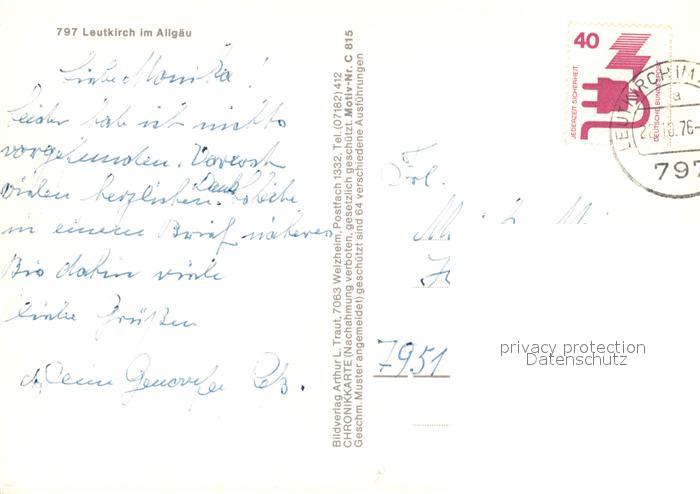 797 Leutkirch im Allgäu
Liebe Monika!
Leider hab ich nichts
vorgefunden. Vorerst
vielen herzlichen Dank
in einem Brief näheres
Bis dahin viele
liebe Grüßen
Bildverlag Arthur L. Traut, 7063 Welzheim, Postfach 1332, Tel. (07182) 412
CHRONIKKARTE (Nachahmung verboten, gesetzlich geschützt) Motiv-Nr. C 815
Geschm. Muster angemeldet) geschützt sind 64 verschiedene Ausführungen
40
JEDERZEIT SICHERHEIT
DEUTSCHE BUNDESPOST
LEUTKIRCH IM
a
.76-
797
Frl.
M
7951
privacy protection
Datenschutz